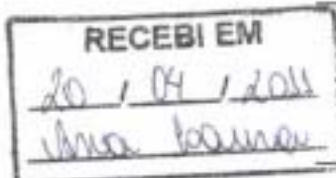 RECEBI EM
20 / 04 / 2011
Ana